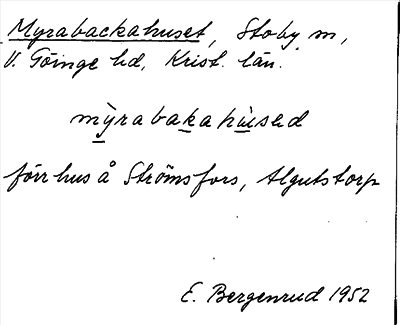 Myrabackahuset, Stoby sn,
V. Göinge hd, Krist. län.
mỳrabakahùsəd
förr hus å Strömsfors, Algutstorp
E. Bergenrud 1952